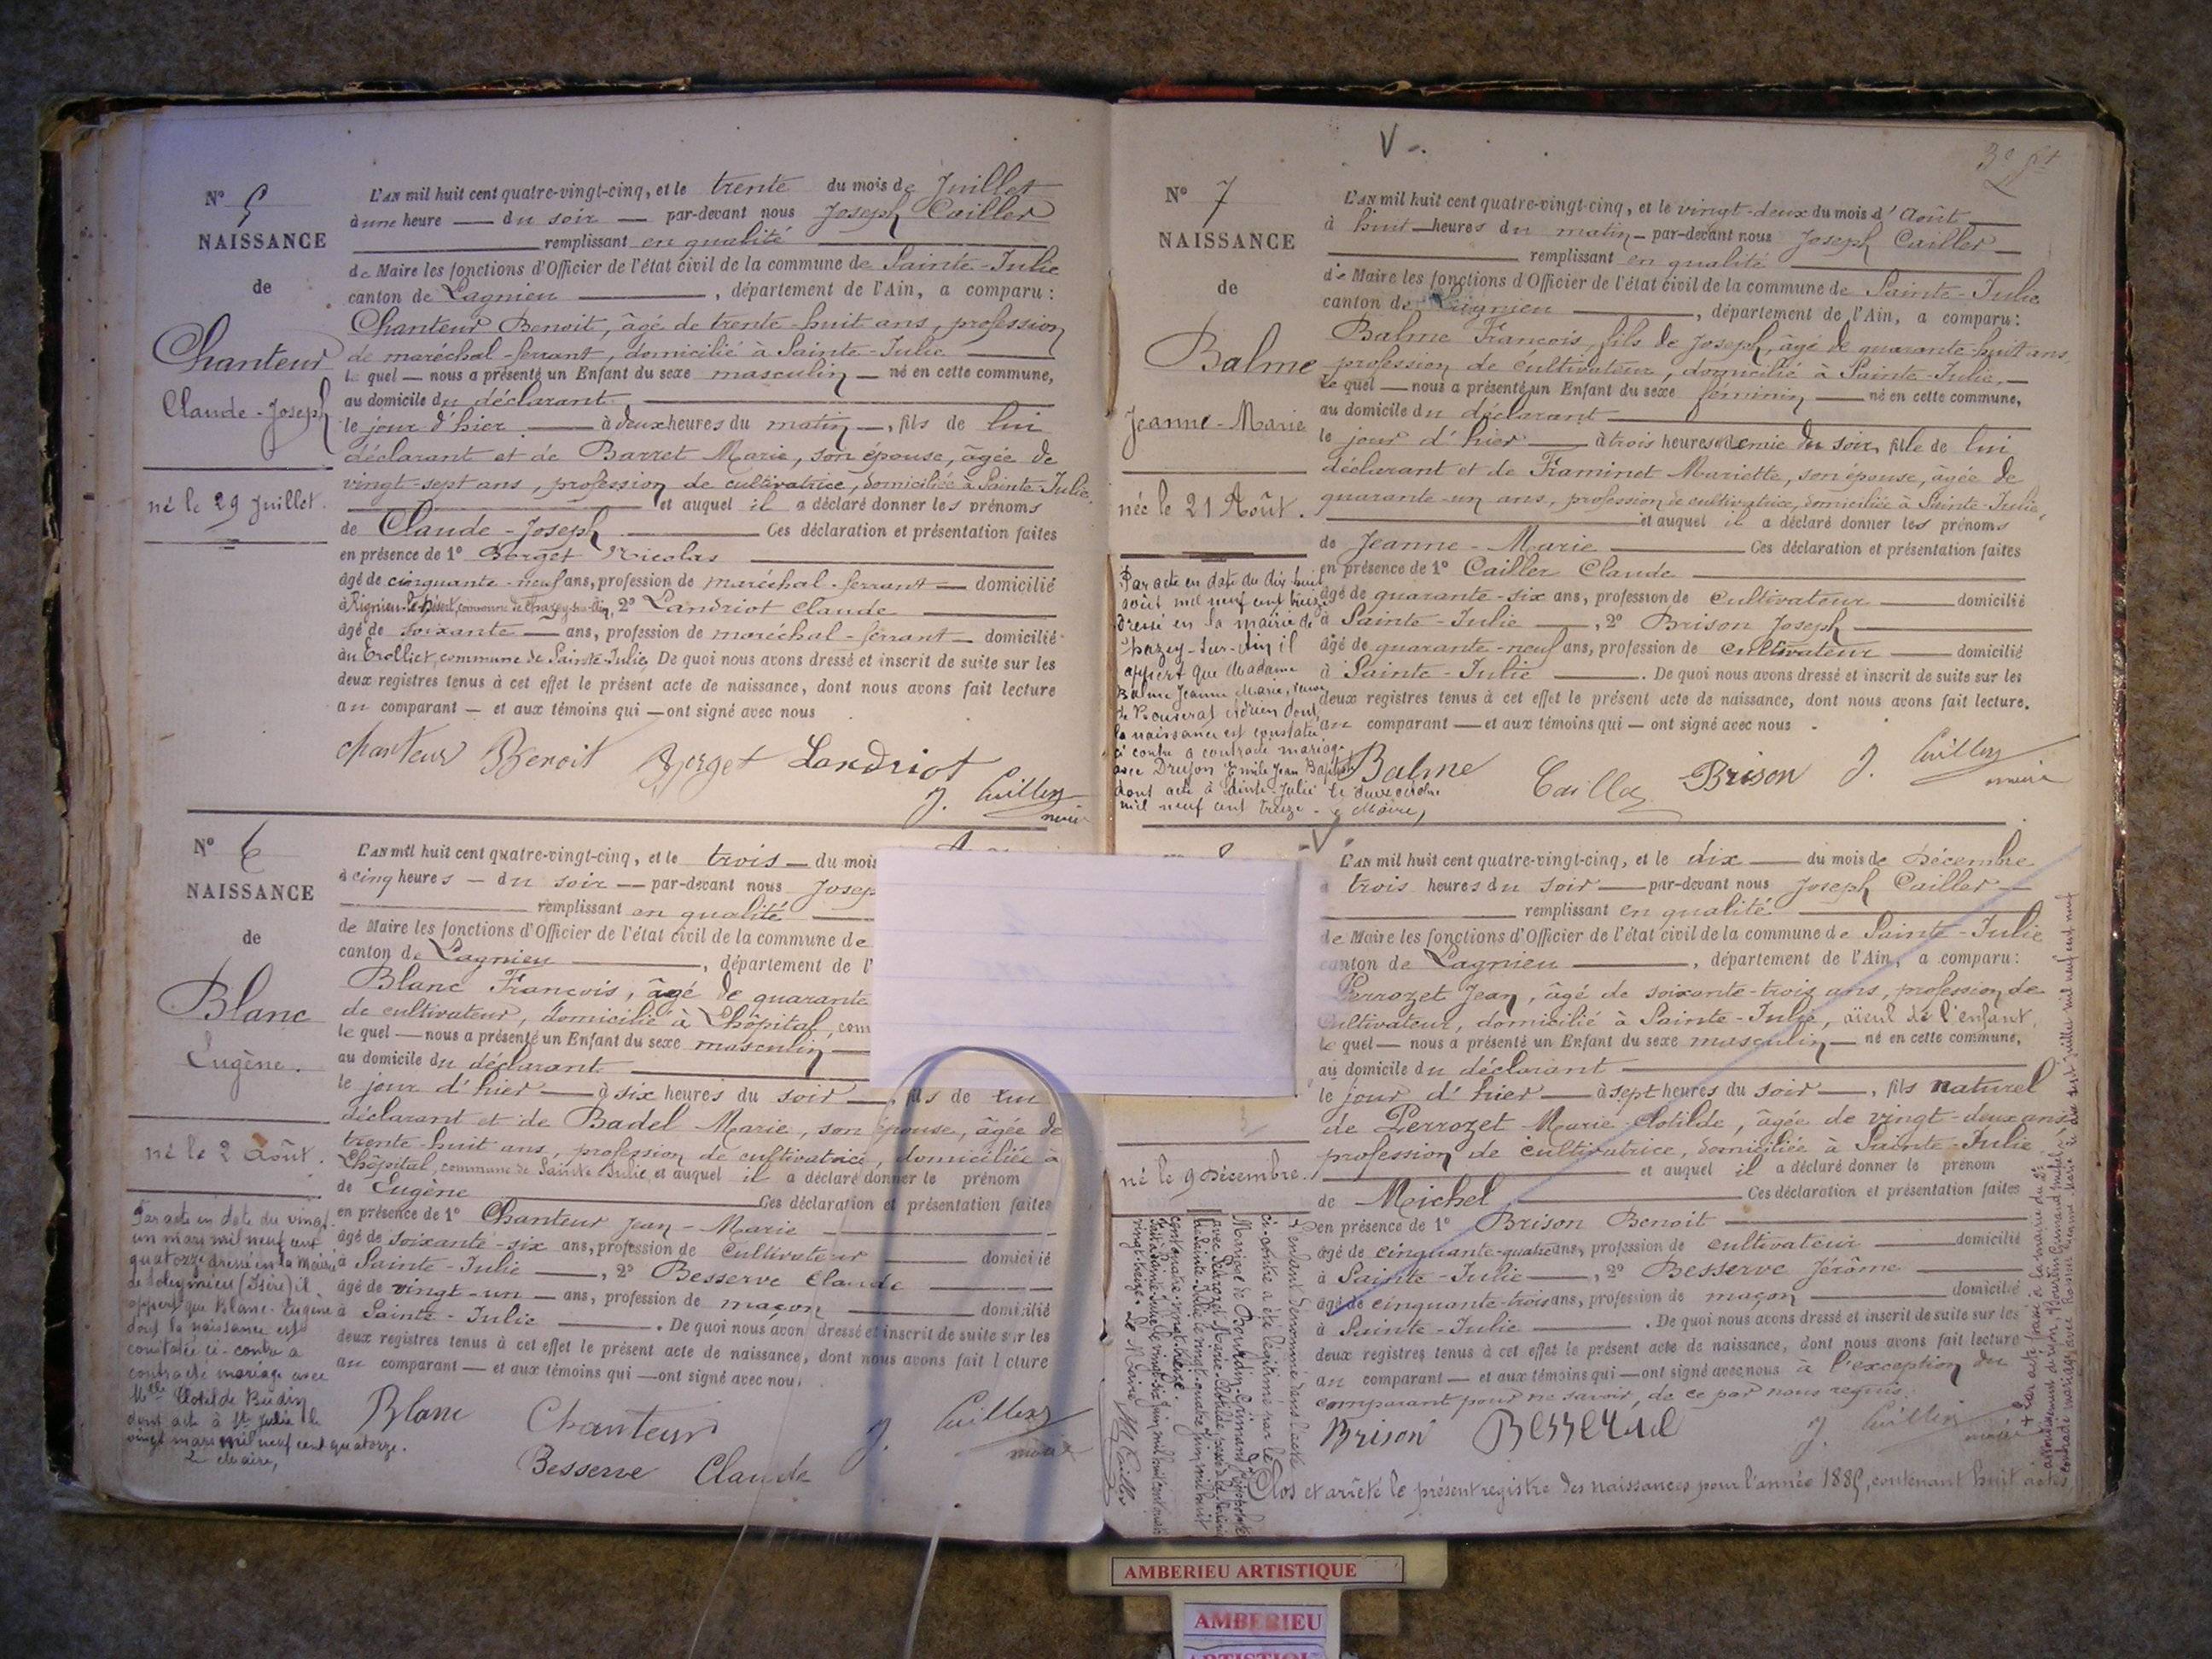 N° 5
NAISSANCE
de
Chanteur
Claude-Joseph
né le 29 Juillet.
L'AN mil huit cent quatre-vingt-cinq, et le trente du mois de Juillet
à une heure du soir par-devant nous Joseph Cailler
remplissant en qualité
de Maire les fonctions d'Officier de l'état civil de la commune de Sainte-Julie
canton de Lagnieu, département de l'Ain, a comparu :
Chanteur Benoit, âgé de trente-huit ans, profession
de maréchal-ferrant, domicilié à Sainte-Julie
le quel nous a présenté un Enfant du sexe masculin né en cette commune,
au domicile du déclarant
le jour d'hier à deux heures du matin, fils de lui
déclarant et de Barret Marie, son épouse, âgée de
vingt-sept ans, profession de cultivatrice, domiciliée à Sainte-Julie,
et auquel il a déclaré donner les prénoms
de Claude-Joseph Ces déclaration et présentation faites
en présence de 1° Borget Nicolas
âgé de cinquante-neuf ans, profession de maréchal-ferrant domicilié
à Rignieu-le-Désert, commune de Chazey-sur-Ain, 2° Landriot Claude
âgé de soixante ans, profession de maréchal-ferrant domicilié
au Trolliet, commune de Sainte-Julie. De quoi nous avons dressé et inscrit de suite sur les
deux registres tenus à cet effet le présent acte de naissance, dont nous avons fait lecture
au comparant et aux témoins qui ont signé avec nous
Chanteur Benoit Borget Landriot
J. Cailler
maire
N° 6
NAISSANCE
de
Blanc
Eugène.
né le 2 Août.
Par acte en date du vingt
un mars mil neuf cent
quatorze dressé en la Mairie
de Soleymieu (Isère) il
appert que Blanc Eugène
dont la naissance est
constatée ci-contre a
contracté mariage avec
Mlle Clotilde Budin
dont acte à Ste Julie le
vingt mars mil neuf cent quatorze.
Le Maire,
L'AN mil huit cent quatre-vingt-cinq, et le trois du mois
à cinq heures du soir par-devant nous Josep
remplissant en qualité
de Maire les fonctions d'Officier de l'état civil de la commune de
canton de Lagnieu, département de l'
Blanc François, âgé de quarante
de cultivateur, domicilié à Lhôpital, com
le quel nous a présenté un Enfant du sexe masculin
au domicile du déclarant
le jour d'hier à six heures du soir, fils de lui
déclarant et de Badel Marie, son épouse, âgée de
trente-huit ans, profession de cultivatrice, domiciliée à
Lhôpital, commune de Sainte Julie, et auquel il a déclaré donner le prénom
de Eugène Ces déclaration et présentation faites
en présence de 1° Chanteur Jean-Marie
âgé de soixante-six ans, profession de cultivateur domicilié
à Sainte-Julie, 2° Besserve Claude
âgé de vingt-un ans, profession de maçon domicilié
à Sainte-Julie. De quoi nous avons dressé et inscrit de suite sur les
deux registres tenus à cet effet le présent acte de naissance, dont nous avons fait lecture
au comparant et aux témoins qui ont signé avec nous.
Blanc Chanteur J. Cailler
maire
Besserve Claude
V
N° 7
NAISSANCE
de
Balme
Jeanne-Marie
née le 21 Août.
Par acte en date du dix huit
août mil neuf cent treize
dressé en la mairie de
Chazey-sur-Ain il
appert que Madame
Balme Jeanne Marie, veuve
de Bouverat Adrien dont
la naissance est constatée
ci contre a contracté mariage
avec Drujon Emile Jean Baptiste
dont acte à Sainte Julie le deux octobre
mil neuf cent treize. Le Maire,
L'AN mil huit cent quatre-vingt-cinq, et le vingt-deux du mois d'Août
à huit heures du matin par-devant nous Joseph Cailler
remplissant en qualité
de Maire les fonctions d'Officier de l'état civil de la commune de Sainte-Julie
canton de Lagnieu, département de l'Ain, a comparu :
Balme François, fils de Joseph, âgé de quarante-huit ans,
profession de cultivateur, domicilié à Sainte-Julie,
le quel nous a présenté un Enfant du sexe féminin né en cette commune,
au domicile du déclarant
le jour d'hier à trois heures et demie du soir, fille de lui
déclarant et de Framinet Mariette, son épouse, âgée de
quarante-un ans, profession de cultivatrice, domiciliée à Sainte-Julie,
et auquel il a déclaré donner les prénoms
de Jeanne-Marie Ces déclaration et présentation faites
en présence de 1° Cailler Claude
âgé de quarante-six ans, profession de cultivateur domicilié
à Sainte-Julie, 2° Brison Joseph
âgé de quarante-neuf ans, profession de cultivateur domicilié
à Sainte-Julie. De quoi nous avons dressé et inscrit de suite sur les
deux registres tenus à cet effet le présent acte de naissance, dont nous avons fait lecture.
au comparant et aux témoins qui ont signé avec nous
Balme Cailler Brison J. Cailler
maire
né le 9 Décembre.
L'enfant dénommé dans l'acte
ci-contre a été légitimé par le
Mariage de
avec Perrozet Marie-Clotilde,
Le Maire
L'AN mil huit cent quatre-vingt-cinq, et le dix du mois de Décembre
à trois heures du soir par-devant nous Joseph Cailler
remplissant en qualité
de Maire les fonctions d'Officier de l'état civil de la commune de Sainte-Julie
canton de Lagnieu, département de l'Ain, a comparu :
Perrozet Jean, âgé de soixante-trois ans, profession de
cultivateur, domicilié à Sainte-Julie, aïeul de l'enfant,
le quel nous a présenté un Enfant du sexe masculin né en cette commune,
au domicile du déclarant
le jour d'hier à sept heures du soir, fils naturel
de Perrozet Marie Clotilde, âgée de vingt-deux ans,
profession de cultivatrice, domiciliée à Sainte-Julie
et auquel il a déclaré donner le prénom
de Michel Ces déclaration et présentation faites
en présence de 1° Brison Benoit
âgé de cinquante-quatre ans, profession de cultivateur domicilié
à Sainte-Julie, 2° Besserve Jérôme
âgé de cinquante-trois ans, profession de maçon domicilié
à Sainte-Julie. De quoi nous avons dressé et inscrit de suite sur les
deux registres tenus à cet effet le présent acte de naissance, dont nous avons fait lecture
au comparant et aux témoins qui ont signé avec nous à l'exception du
comparant pour ne savoir, de ce par nous requis.
Brison Besserve J. Cailler
maire
Clos et arrêté le présent registre des naissances pour l'année 1885, contenant huit actes
AMBERIEU ARTISTIQUE
AMBERIEU
ARTISTIQUE